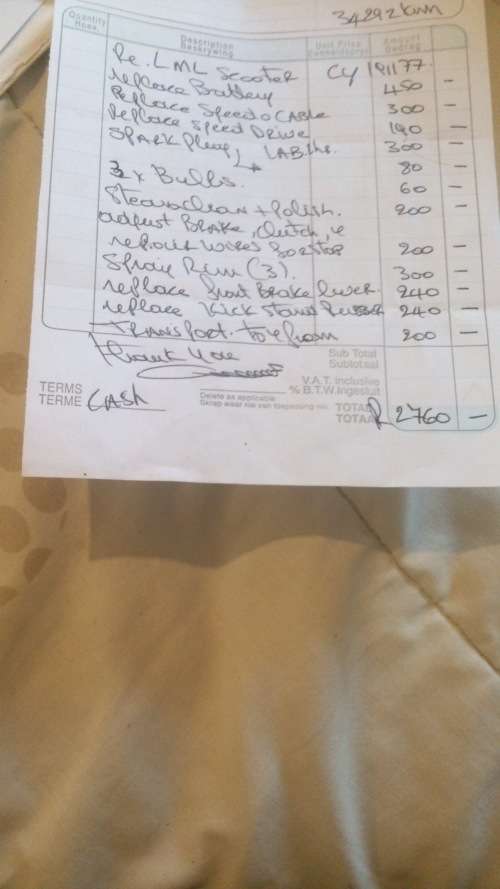 34292 km
Quantity Description Unit Price Amount
Hoev. Beskrywing Eenheidsprys Bedrag
Re. LML Scooter CY 191177.
replace Battery 450 —
Replace Speedo CABLE 300 —
replace speed Drive 190 —
SPARK Plug LAB 1hr. 300 —
80 —
3 x Bulbs. 60 —
Steamclean + Polish. 200 —
adjust Brake, clutch,
wires for stop 200 —
Spray Rim (3). 300 —
replace front Brake lever. 240 —
replace Kick Stand Rubber 240 —
Transport. to & from 200 —
thank you
Sub Total
Subtotaal
V.A.T. Inclusive
% B.T.W. Ingesluit
TERMS
TERME CASH
Delete as applicable
Skrap waar nie van toepassing nie.
TOTAL
TOTAAL R 2760 —